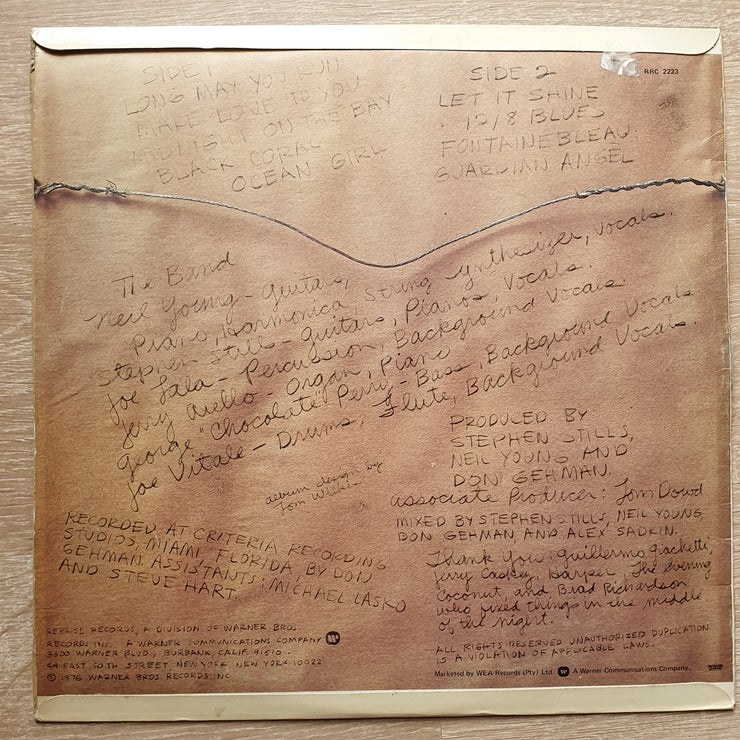 SIDE 1
LONG MAY YOU RUN
MAKE LOVE TO YOU
MIDNIGHT ON THE BAY
BLACK CORAL
OCEAN GIRL
SIDE 2
LET IT SHINE
12/8 BLUES
FONTAINEBLEAU
GUARDIAN ANGEL
RRC 2223
The Band
Neil Young - Guitars,
Piano, Harmonica, String Synthesizer, Vocals.
Stephen Stills - Guitars, Pianos, Vocals.
Joe Lala - Percussion, Background Vocals
Jerry Aiello - Organ, Piano
George "Chocolate" Perry - Bass, Background Vocals
Joe Vitale - Drums, Flute, Background Vocals.
album design by
Tom Wilkes
PRODUCED BY
STEPHEN STILLS,
NEIL YOUNG AND
DON GEHMAN.
Associate Producer: Tom Dowd
MIXED BY STEPHEN STILLS, NEIL YOUNG
DON GEHMAN, AND ALEX SADKIN.
RECORDED AT CRITERIA RECORDING
STUDIOS, MIAMI, FLORIDA, BY DON
GEHMAN ASSISTANTS: MICHAEL LASKO
AND STEVE HART.
Thank You: Guillermo Giachetti,
Jerry Caskey, Harper, The evening
Coconut, and Brad Richardson
who fixed things in the middle
of the night.
REPRISE RECORDS, A DIVISION OF WARNER BROS.
RECORDS INC. A WARNER COMMUNICATIONS COMPANY
3300 WARNER BLVD., BURBANK, CALIF. 91510.
44 EAST 50TH STREET, NEW YORK, NEW YORK 10022
© 1976 WARNER BROS. RECORDS INC.
ALL RIGHTS RESERVED UNAUTHORIZED DUPLICATION
IS A VIOLATION OF APPLICABLE LAWS.
Marketed by WEA Records (Pty) Ltd. A Warner Communications Company.